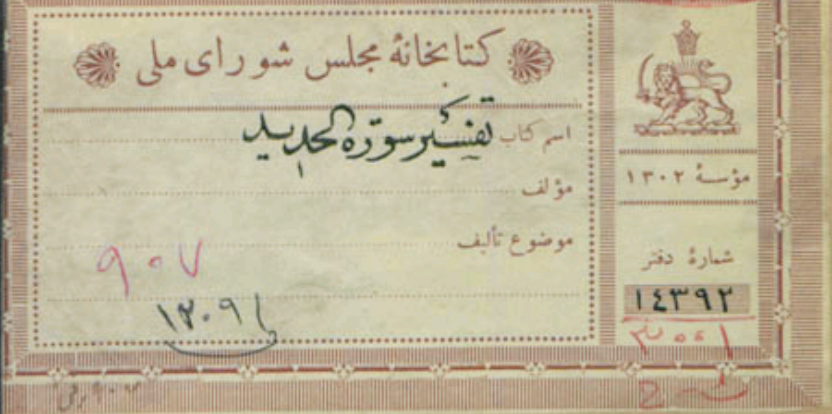 کتابخانهٔ مجلس شورای ملی
اسم کتاب تفسیر سورة الحدید
مؤلف
موضوع تألیف
۹۰۷
۱۳۰۹۱
مؤسسهٔ ۱۳۰۲
شمارهٔ دفتر
۱٤۳۹۲